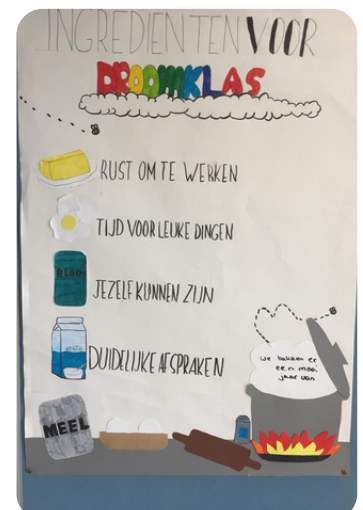 INGREDIENTEN VOOR
DROOMKLAS
RUST OM TE WERKEN
TIJD VOOR LEUKE DINGEN
JEZELF KUNNEN ZIJN
DUIDELIJKE AFSPRAKEN
we bakken er
een mooi
jaar van
MEEL